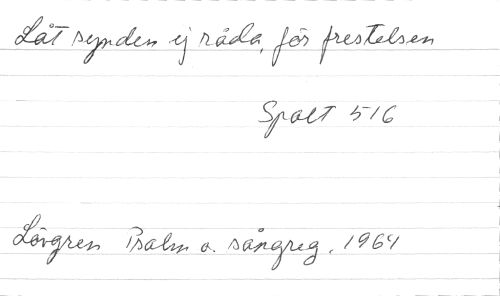 Låt synden ej råda, för frestelsen
Spalt 516
Lövgren Psalm o. sångreg. 1964